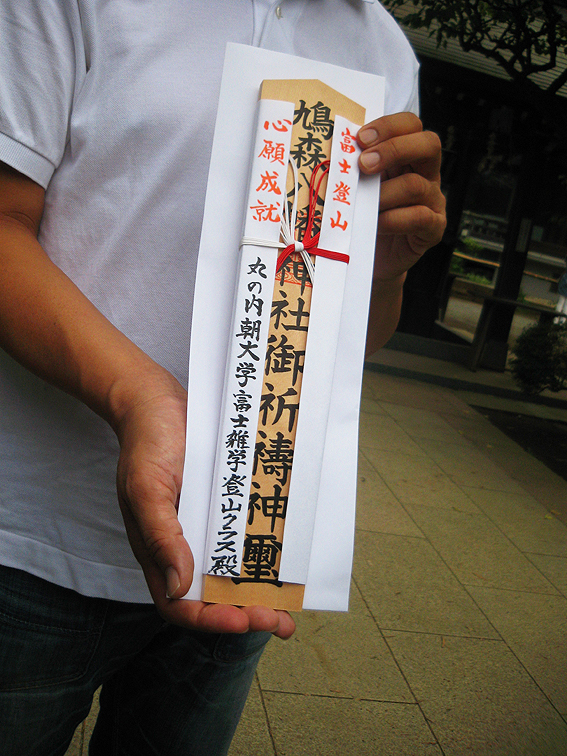 富士登山
鳩森八幡神社御祈禱神璽
心願成就
丸の内朝大学富士雑学登山クラス殿